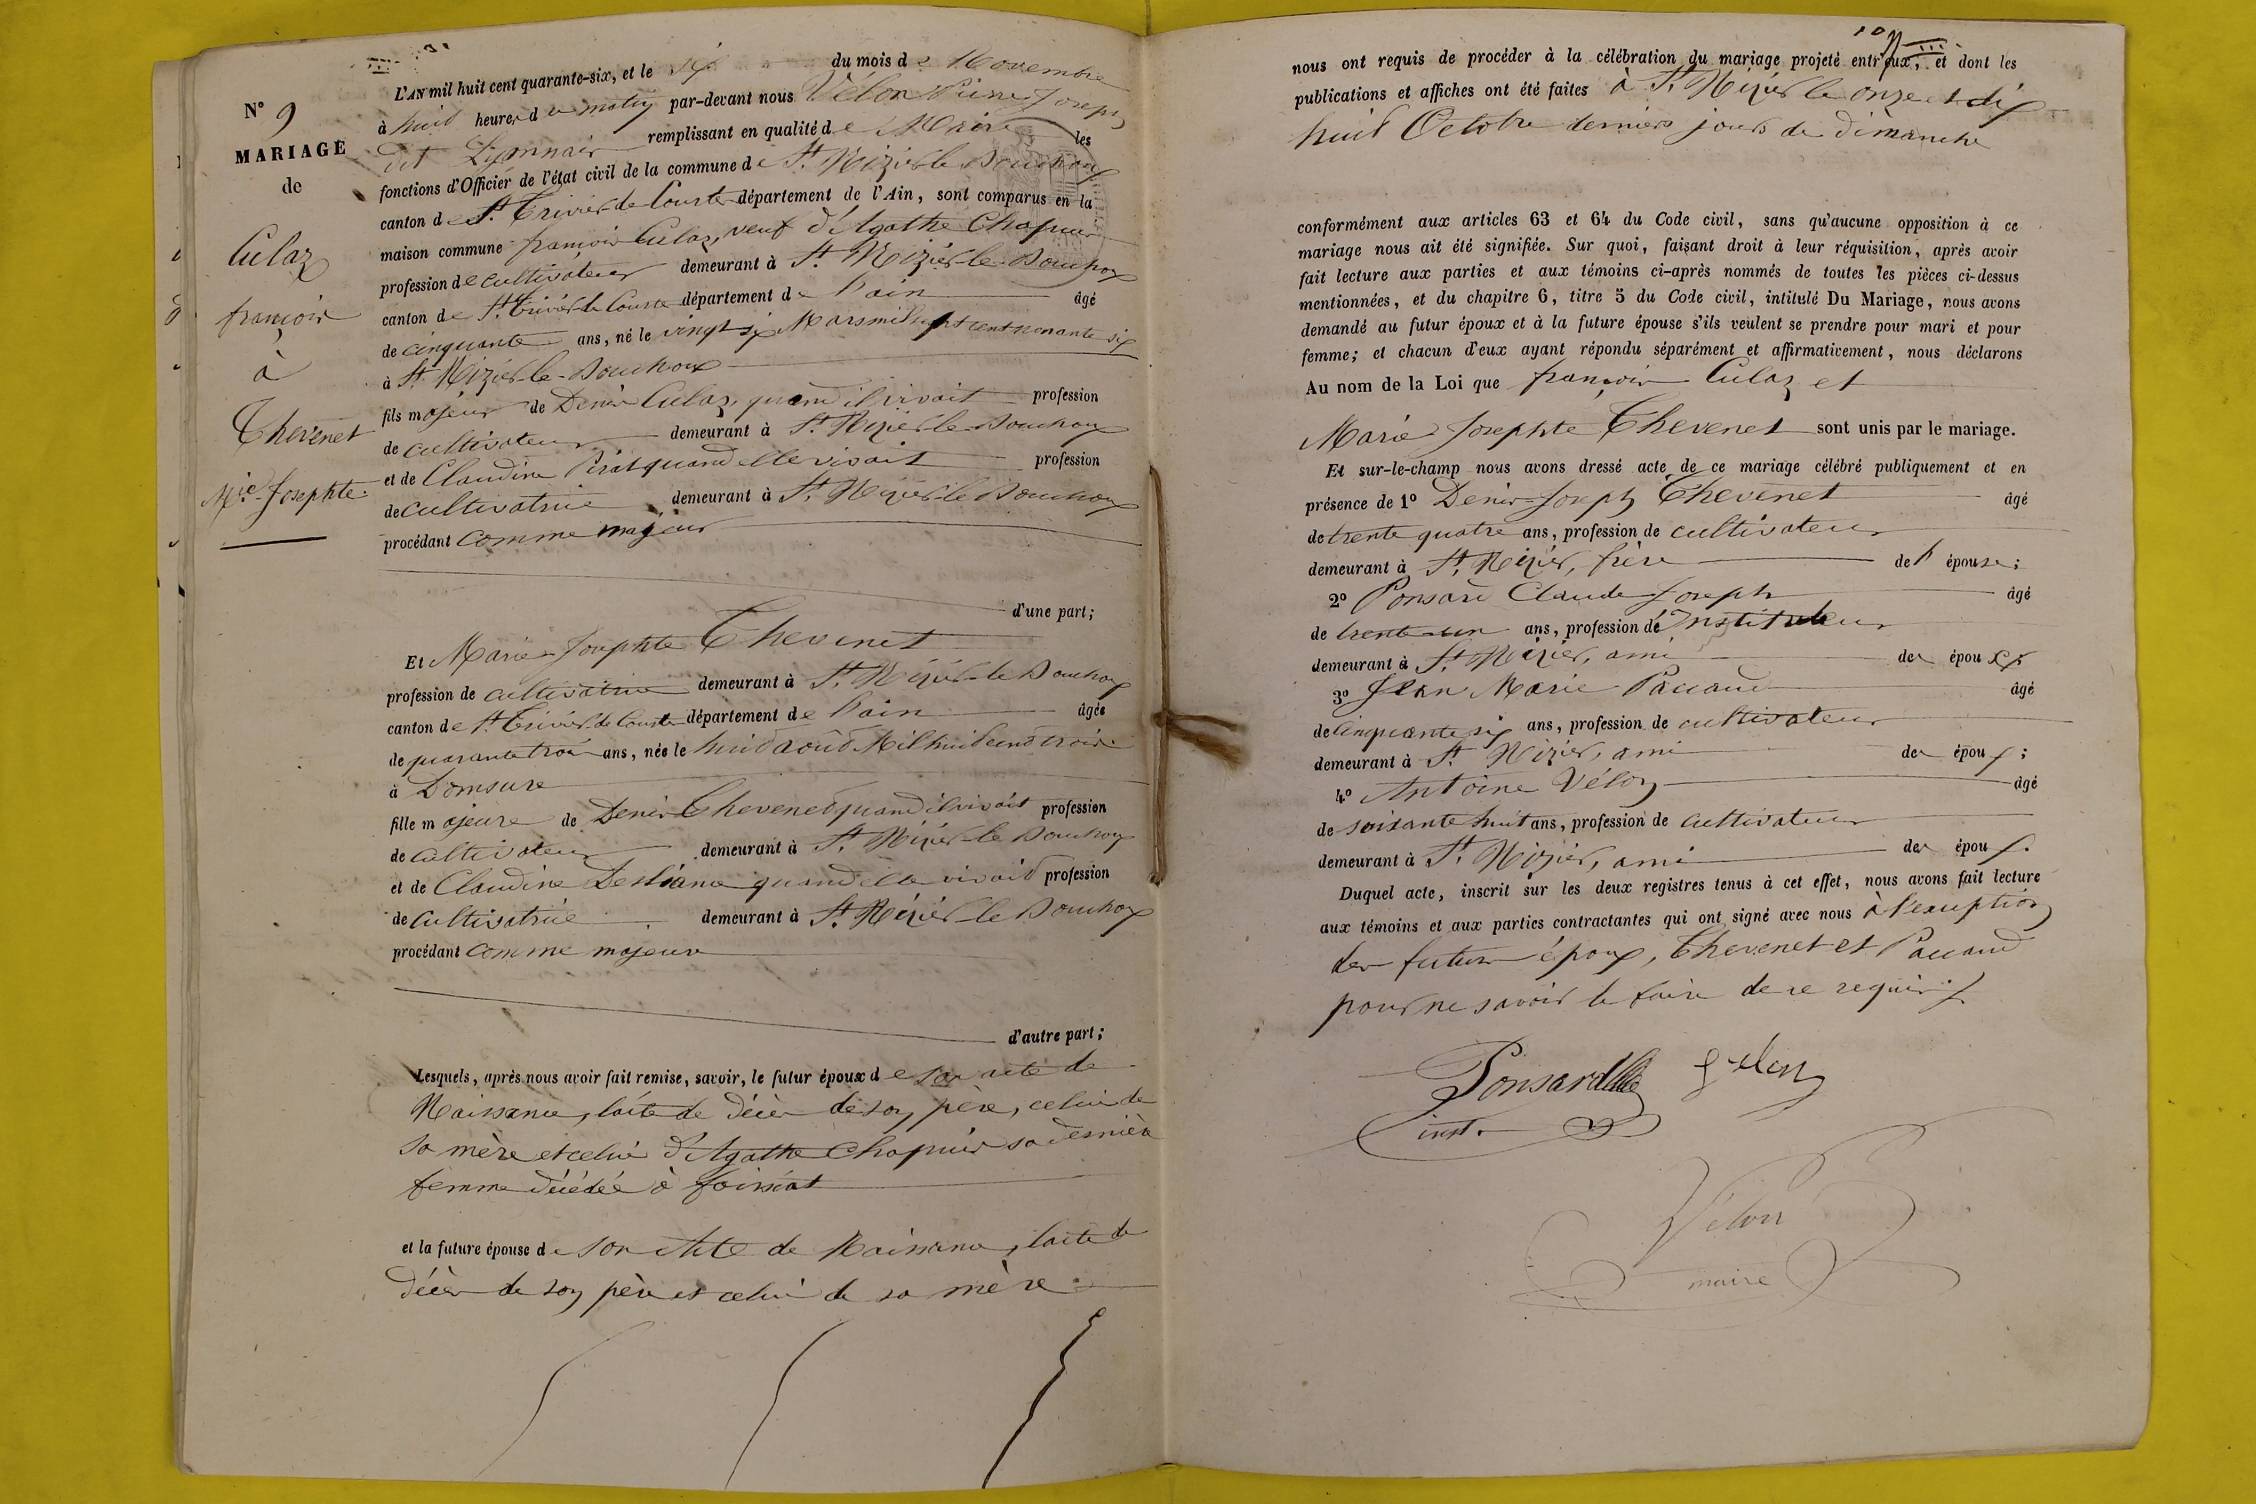 N° 9
MARIAGE
de
Culaz
françois
à
Thevenet
Mie Josephte
L'AN mil huit cent quarante-six, et le six du mois de Novembre
à huit heures du matin par-devant nous Vélon Pierre Joseph
dit Lyonnais remplissant en qualité de Maire les
fonctions d'Officier de l'état civil de la commune de St Nizier le Bouchoux
canton de St Trivier de Courtes département de l'Ain, sont comparus en la
maison commune françois Culaz, veuf d'Agathe Chapuis
profession de cultivateur demeurant à St Nizier-le-Bouchoux
canton de St Trivier de Courtes département de l'ain âgé
de cinquante ans, né le vingt six Mars mil sept cent nonante six
à St Nizier-le-Bouchoux
fils majeur de Denis Culaz, quand il vivait profession
de cultivateur demeurant à St Nizier-le-Bouchoux
et de Claudine Pirat quand elle vivait profession
de cultivatrice demeurant à St Nizier-le-Bouchoux
procédant comme majeur
d'une part;
Et Marie-Josephte Thevenet
profession de cultivatrice demeurant à St Nizier-le Bouchoux
canton de St Trivier de Courtes département de l'ain âgée
de quarante trois ans, née le huit août Mil huit cent trois
à Domsure
fille majeure de Denis Thevenet quand il vivait profession
de cultivateur demeurant à St Nizier-le Bouchoux
et de Claudine quand elle vivait profession
de cultivatrice demeurant à St Nizier-le Bouchoux
procédant comme majeure
d'autre part;
Lesquels, après nous avoir fait remise, savoir, le futur époux de son acte de
Naissance, l'acte de décès de son père, celui de
sa mère et celui d'Agathe Chapuis sa dernière
femme décédée à foissiat
et la future épouse de son Acte de Naissance, l'acte de
décès de son père et celui de sa mère
nous ont requis de procéder à la célébration du mariage projeté entr'eux, et dont les
publications et affiches ont été faites à St Nizier le onze et dix
huit Octobre derniers jours de dimanche
conformément aux articles 63 et 64 du Code civil, sans qu'aucune opposition à ce
mariage nous ait été signifiée. Sur quoi, faisant droit à leur réquisition, après avoir
fait lecture aux parties et aux témoins ci-après nommés de toutes les pièces ci-dessus
mentionnées, et du chapitre 6, titre 5 du Code civil, intitulé Du Mariage, nous avons
demandé au futur époux et à la future épouse s'ils veulent se prendre pour mari et pour
femme; et chacun d'eux ayant répondu séparément et affirmativement, nous déclarons
Au nom de la Loi que françois Culaz et
Marie Josephte Thevenet sont unis par le mariage.
Et sur-le-champ nous avons dressé acte de ce mariage célébré publiquement et en
présence de 1° Denis-Joseph Thevenet âgé
de trente quatre ans, profession de cultivateur
demeurant à St Nizier, frère de l' épouse;
2° Ponsard Claude Joseph âgé
de trente un ans, profession de Instituteur
demeurant à St Nizier, ami des époux
3° Jean Marie Paccaud âgé
de cinquante six ans, profession de cultivateur
demeurant à St Nizier, ami des époux;
4° Antoine Vélon âgé
de soixante huit ans, profession de cultivateur
demeurant à St Nizier, ami des époux.
Duquel acte, inscrit sur les deux registres tenus à cet effet, nous avons fait lecture
aux témoins et aux parties contractantes qui ont signé avec nous à l'exception
des futurs époux, Thevenet et Paccaud
pour ne savoir le faire de ce requis
Ponsard
inst.
Vélon
maire